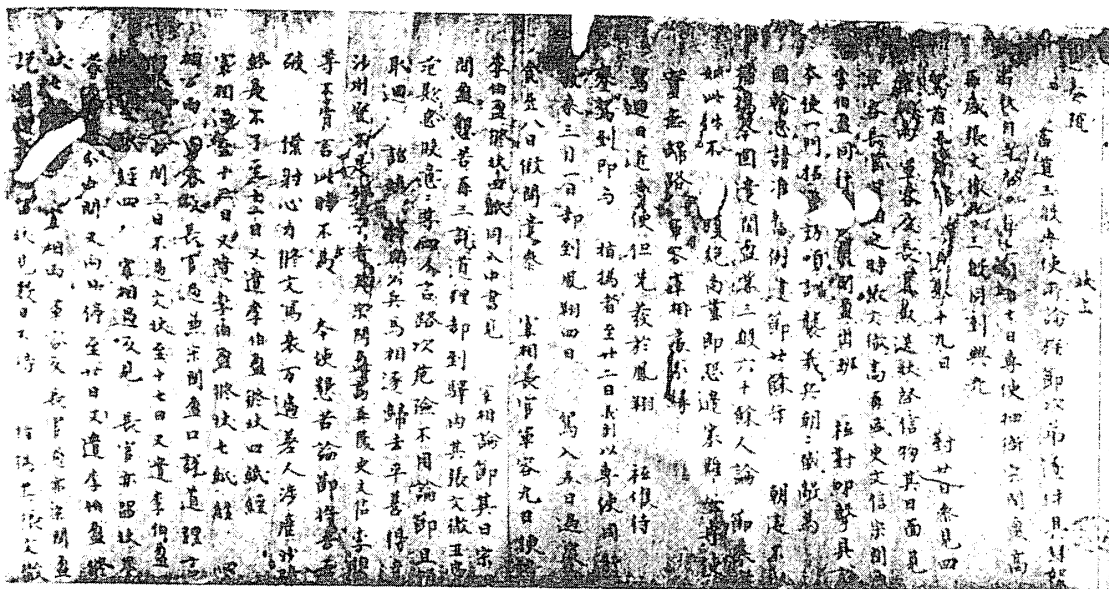 進奏院　狀上
當道三般專使所論旌節次第逐件具錄如後
右伏自光啟三年二月十七日專使押衙宋閏盈高
再盛張文徹等三般同到興元
駕前十八日使進奉十九日　對廿日參見四
宰相兩軍容及長官兼送狀啟信物其日面見
軍容長官宰相之時張文徹高再盛史文信宋閏盈
李伯盈同行宋閏盈出班　祗對叩擊具說
本使一門拓邊効順訓襲義兵朝朝戰敵為
國輸忠請准舊例建節廿餘年　朝廷不
指撝今固遣閏盈等三般六十餘人論節來
如此件不絕商量即恐邊塞難安專使
實無歸路軍容宰相處分緣
駕迴日近專使但先發於鳳翔　祗候侍
鑾駕到即與　指撝者至廿二日夷則以專使同行
發來三月一日却到鳳翔四日　駕入五日遇寒
食至八日假開遣參　宰相長官軍容九日便遣
李伯盈修狀四紙同入中書見　宰相論節其日宋
閏盈懇苦再三說道理却到驛內其張文徹王忠忠
范欺忠段意意等四人言路次危險不用論節且領
取迴　詔隨韓相公兵馬相逐歸去平善得達
沙州豈不是好事者其宋閏盈高再盛史文信李伯盈
等不肯言此時不為　本使懇苦論節將去虛
破　僕射心力修文寫表萬遍差人涉歷沙磧
終是不了至十一日又遣李伯盈修狀四紙經
宰相過至十三日又遣李伯盈修狀七紙經四
相公兩軍容及長官過兼宋閏盈口說道理言
留狀中間三日不過文狀至十七日又遣李伯盈
修狀五紙經四　宰相過及見　長官亦留狀不
蒙處分中間又兩日停至廿日又遣李伯盈修
狀七紙　宰相兩軍容及　長官過亦宋閏盈
說道理亦言留狀見數日不得　指撝其張文徹